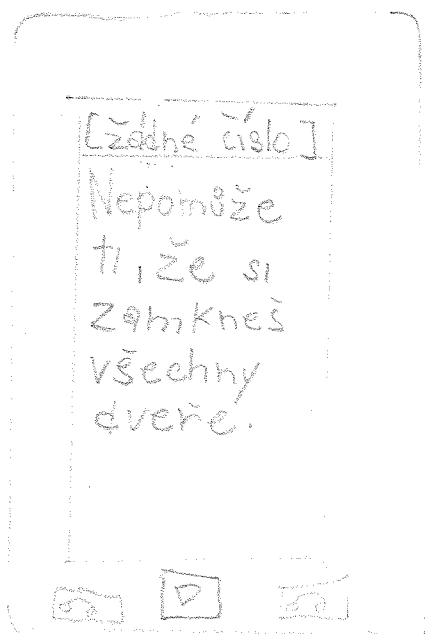 [žádné číslo]
Nepomůže
ti, že si
zamkneš
všechny
dveře.